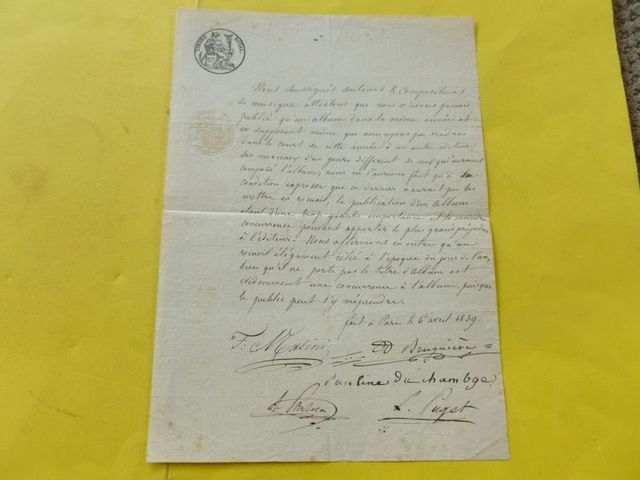 TIMBRE ROYAL
Nous soussignés auteurs & Compositeurs
de musique attestons que nous n'avons jamais
publié qu'un album dans la même année et
en supposant même que nous ayons pu vendre
dans le court de cette année à un autre éditeur
des morceaux d'un genre différent de ceux qu'auraient
composé l'album, nous ne l'aurions fait qu'à la
condition expresse que ce dernier n'aurait pu les
mettre en recueil, la publication d'un album
étant d'une trop grande importance et la moindre
concurrence pouvant apporter le plus grand préjudice
à l'éditeur. Nous affirmons en outre qu'un
recueil élégament relié à l'époque du jour de l'an,
bien qu'il ne porte pas le titre d'album est
évidemment une concurrence à l'album, puisque
le public peut s'y méprendre.
fait à Paris le 6 avril 1839.
F. Masini
Bruguière
Pauline duchambge
L. Puget